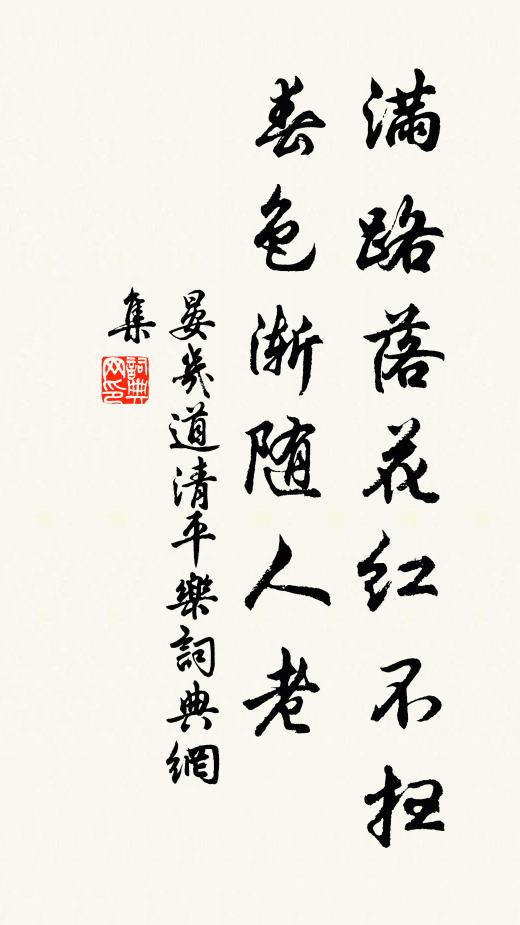 满路落花红不扫
春色渐随人老
晏幾道清平樂詞典網
集
詞典网印